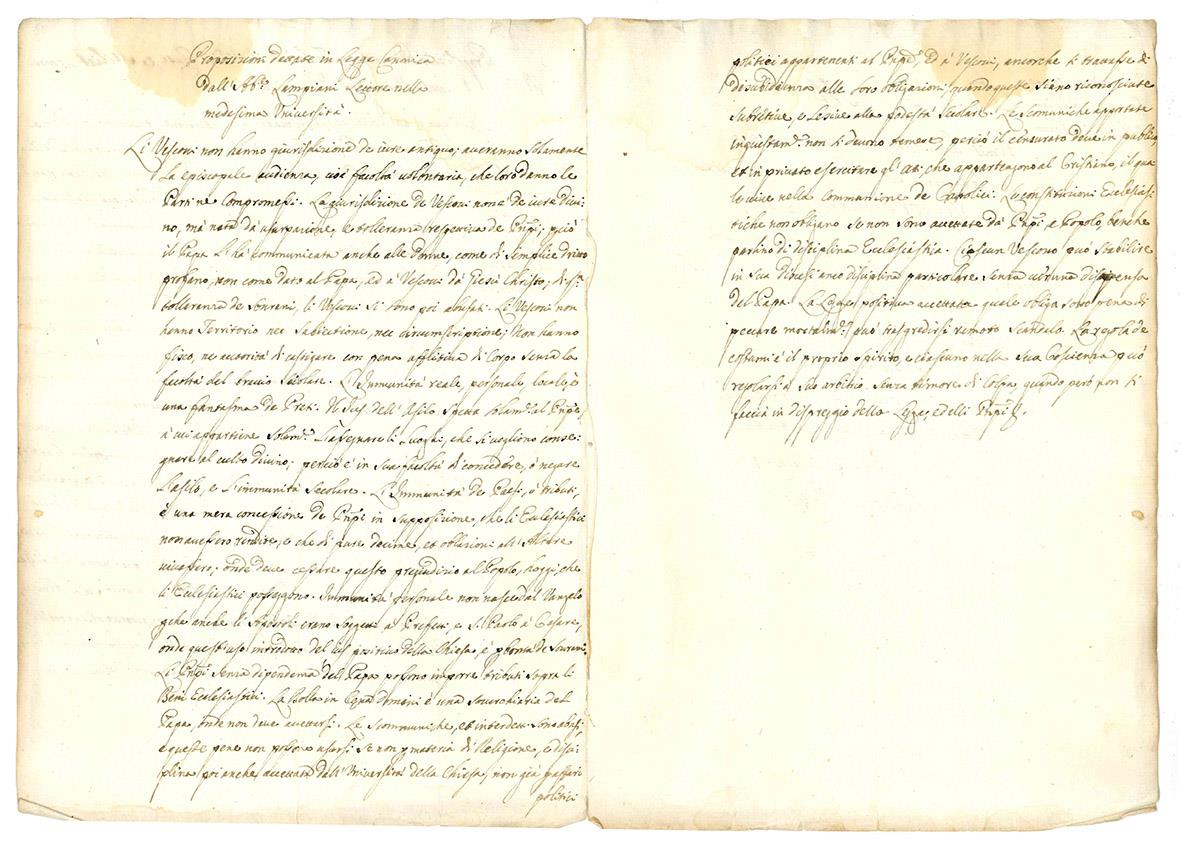 Proposizioni dettate in Legge Canonica
dall'Ab.e Lampiani Lettore nella
medesima Università.
Li Vescovi non hanno giurisdizione de iure antiquo; averanno solamente
la episcopale audienza, cioè facoltà volontaria, che loro danno le
Parti ne compromessi. La giurisdizione de Vescovi non è de iure divi:
no, mà nata dà usurpazione, e tolleranza respettiva de Prnpi; può
il Papa l'hà communicata anche alle Donne, come di semplice dritto
profano, non come dato al Papa, ed a Vescovi dà Giesù Christo, di
tolleranza de Sovrani, li Vescovi si sono poi abusati. Li Vescovi non
hanno Territorio nec Subiectione, nec circumscriptione; Non hanno
fisco, ne autorità di castigare con pena afflittiva di Corpo senza la
facoltà del braccio secolare. L'Immunità reale, personale, locale, è
una fantasma de Preti. Il Jus dell'Asilo spetta solam.e al Prnpe,
à cui appartiene solam.e l'assegnare li Luoghi, che si vogliono conse:
gnare al culto divino; perciò è in sua facoltà di concedere, ò negare
l'asilo, e l'immunità secolare. L'Immunità de Paesi, ò tributi,
è una mera concessione de Prnpi in supposizione, che li Eclesiastici
non avessero rendite, e che di pure decime, et oblazioni all'Altare
vivessero; onde deve cessare questo pregiudizio al Popolo, hoggi, che
li Eclesiastici posseggono. Immunità personale non nasce dal Vangelo
che anche li Apostoli erano soggetti a Prefetti, e S. Paolo à Cesare,
onde quest'uso introdotto del ius positivo della Chiesa, è bontà de Sovrani.
Li Prnpi senza dipendenza del Papa possono imporre tributi sopra li
Beni Ecclesiastici. La Bolla in Cena Domini è una soverchiaria del
Papa, onde non deve accettarsi. Le Scommuniche, et interdetti sono abusi,
e queste pene non possono usarsi se non p materia di Religione, e disci:
plina poi anche accettata dall'Università della Chiesa, non già p affari
politici
politici appartenenti al Prnpe, ed à Vescovi, ancorche si trattasse di
disubidienza alle loro obligazioni, quando queste siano riconosciute
subrettive, e lesive alla podestà secolare. Le scomuniche apportate
in questam.e non si devono temere, perciò il censurato deve in publico,
et in privato esercitare gl'atti, che appartengono al Cristiano, il qua:
le vive nella communione de Catolici. Le constituzioni Ecclesias:
tiche non obligano se non sono accettate dà Prnpi e Popolo, benche
parlino di disciplina Ecclesiastica. Ciascun Vescovo può stabilire
in sua Diocesi anco disciplina particolare senza veruna dispensa
del Papa. La Legge politica accettata quale obliga sotto pena di
peccare mortalm.e può trasgredirsi remoto scandalo. La regola de
costumi è il proprio spirito, e ciascuno nella sua Coscienza può
regolarsi a suo arbitrio senza timore di colpa, quando però non si
faccia in dispreggio della Legge, e delli Prnpi.